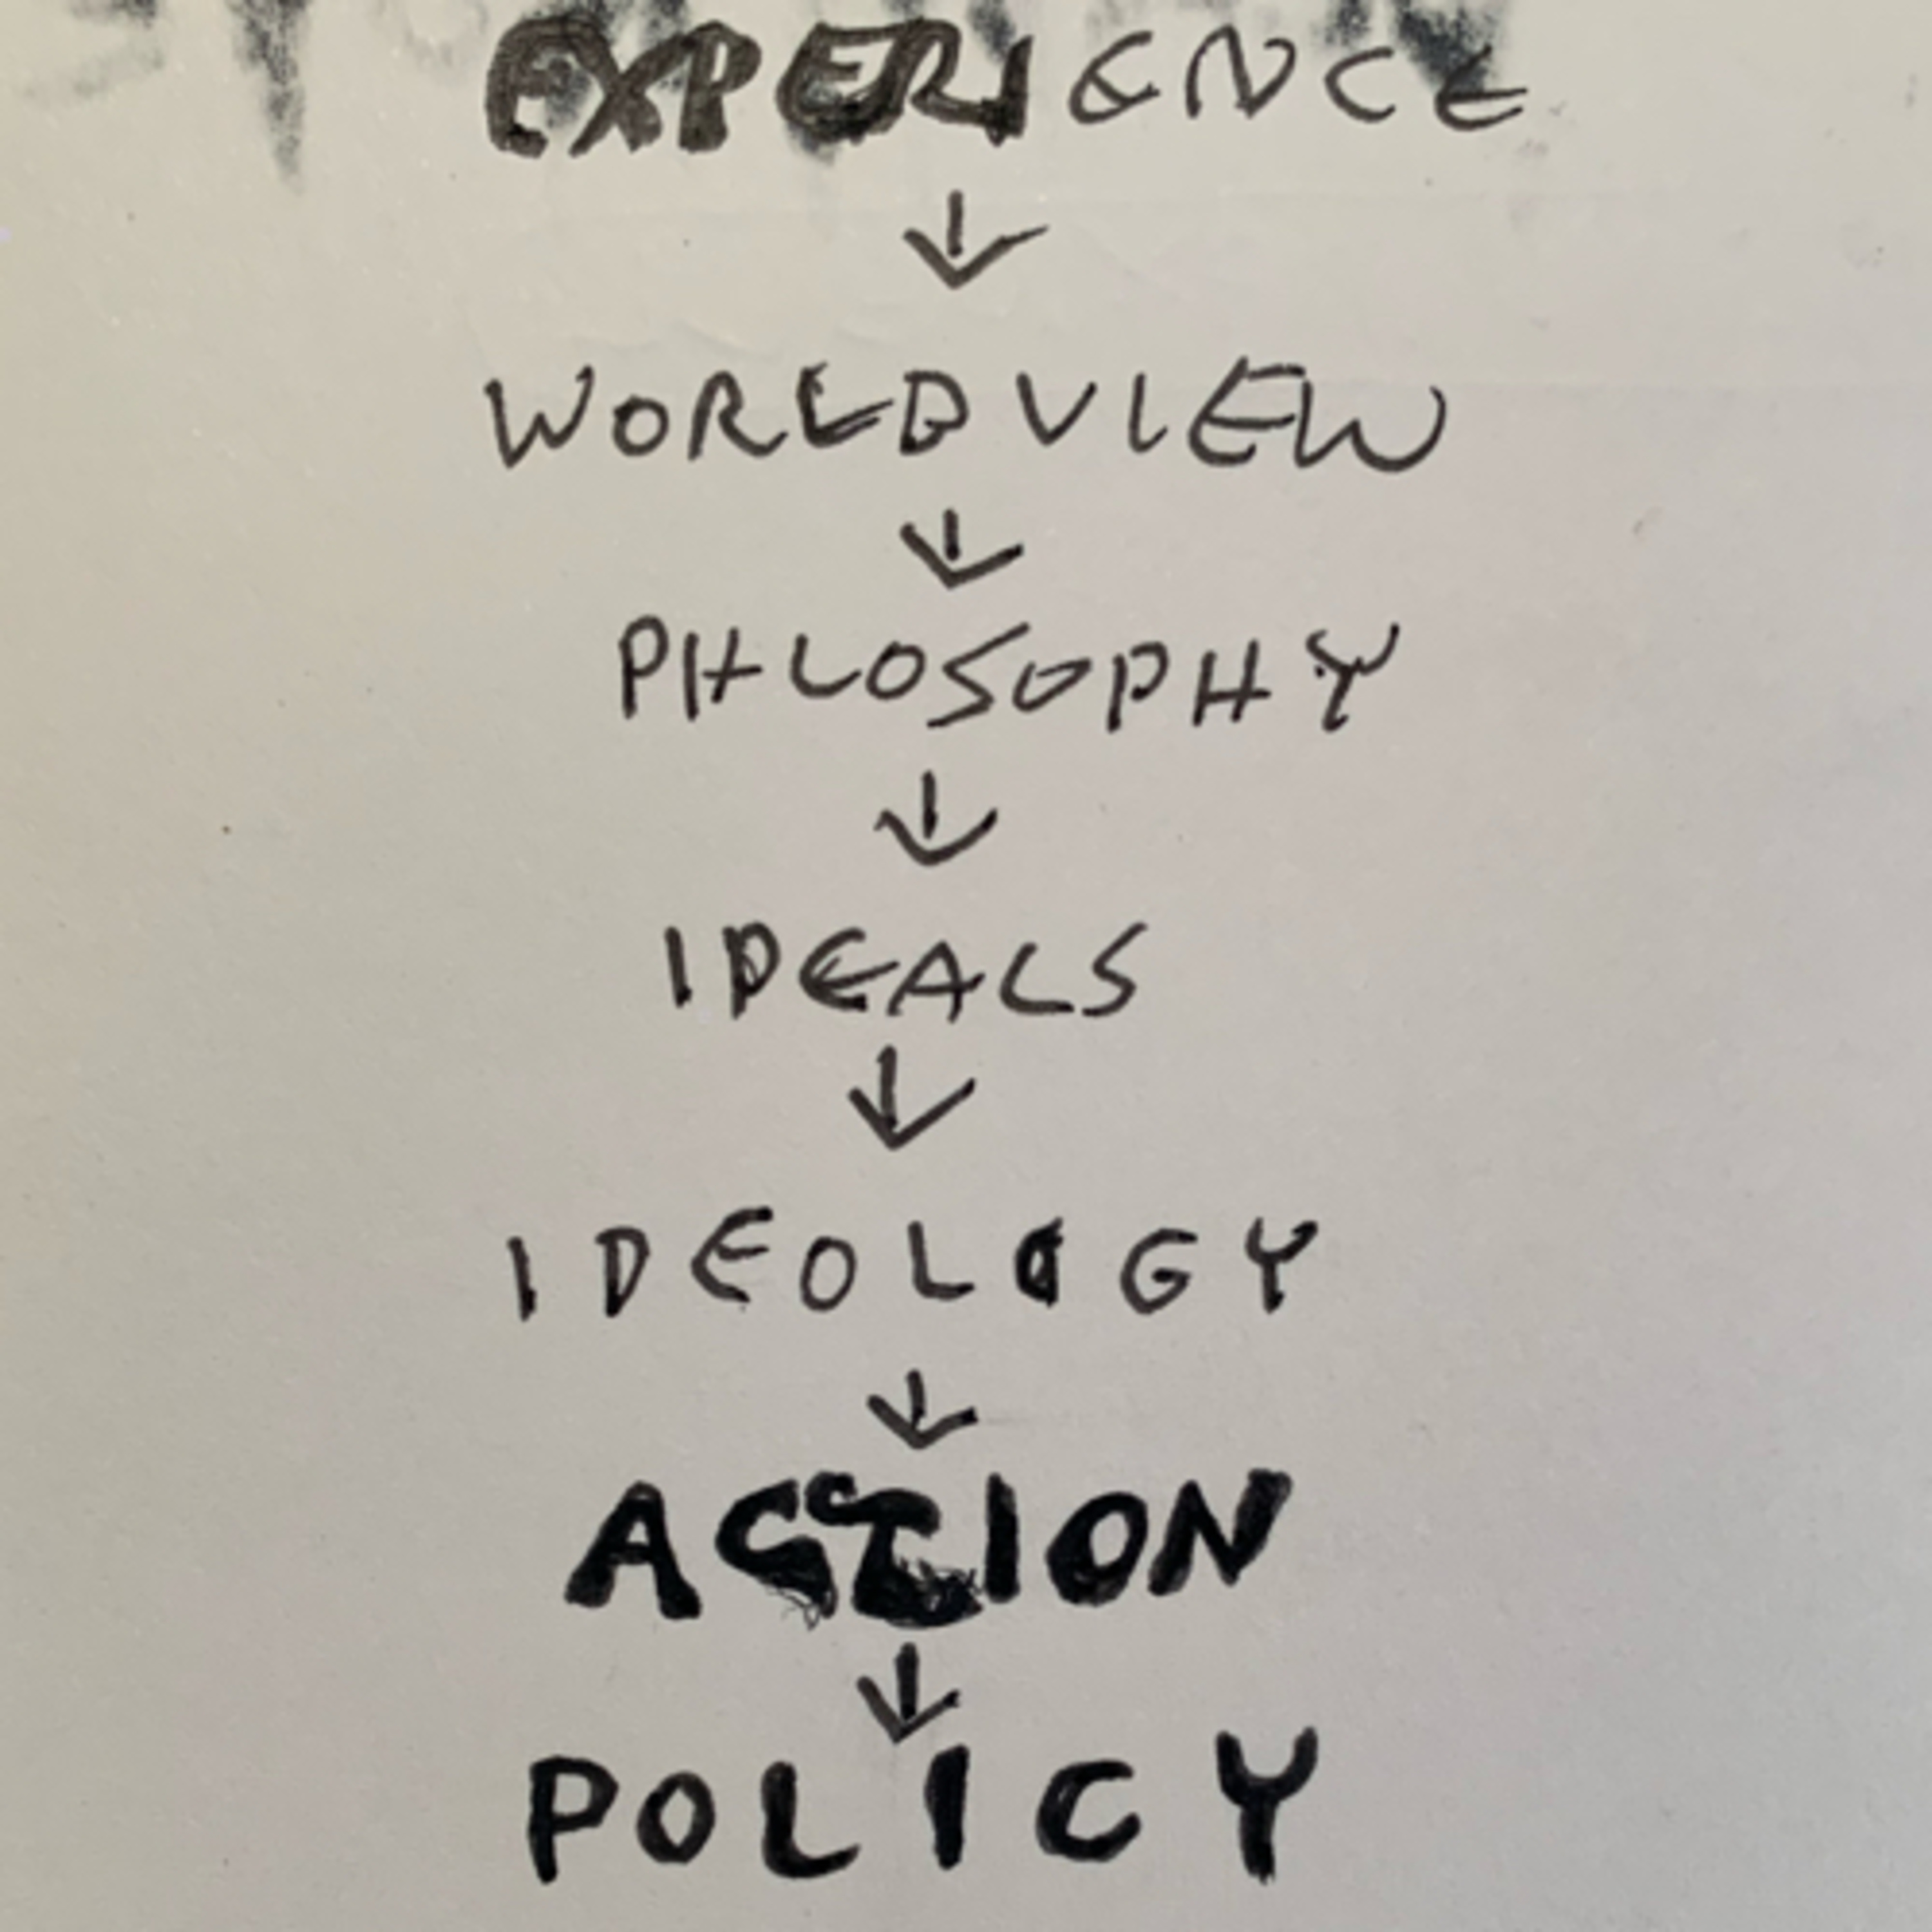 EXPERIENCE
↓
WORLDVIEW
↓
PHLOSOPHY
↓
IDEALS
↓
IDEOLOGY
↓
ACTION
↓
POLICY